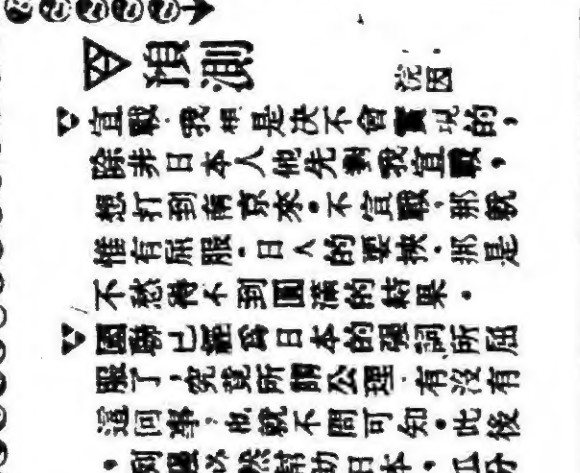 預測
宣戰·我想是決不會實現的，
除非日本人他先對我宣戰，
想打到南京來。不宣戰·那就
惟有屈服·日人的要挾·那是
不愁得不到圓滿的結果。
國聯已爲日本的强詞所屈
服了，究竟所謂公理·有沒有
這回事·也就不問可知·此後
。列强必然幫助日本。瓜分